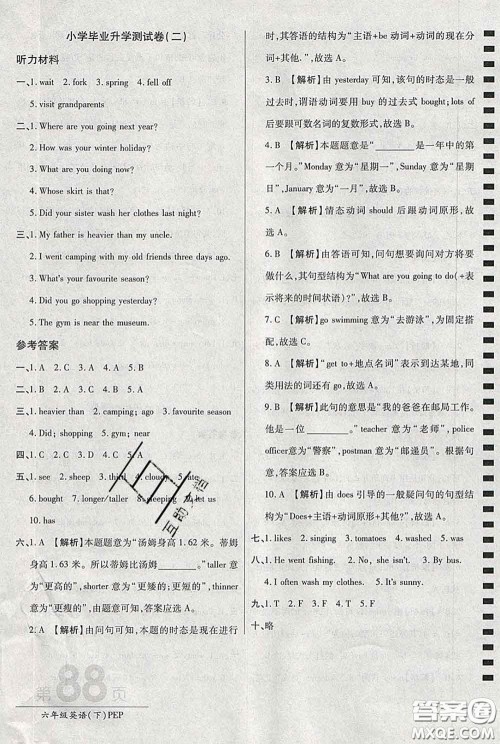 小学毕业升学测试卷(二)
听力材料
一、1. wait  2. fork  3. spring  4. fell off
5. visit grandparents
二、1. Where are you going next year?
2. How was your winter holiday?
3. What are you doing now?
4. Whose skirt is that?
5. Did your sister wash her clothes last night?
三、1. My father is heavier than my uncle.
2. I went camping with my old friends three days ago.
3. What's your favourite season?
4. Did you read books?
5. The gym is near the museum.
参考答案
一、1. C  2. C  3. A  4. C  5. A
二、1. B  2. A  3. B  4. C  5. B
三、1. heavier than  2. camping; ago  3. favourite season
4. Did; read  5. gym; near
四、1. C  2. D  3. A  4. B  5. A
五、1. see  2. sheep  3. third  4. cloudy  5. late
6. bought  7. longer/taller  8. sleeping  9. let us
10. has
六、1. A 【解析】本题题意为“汤姆身高 1.62 米。蒂姆
身高 1.63 米。所以蒂姆比汤姆______。”taller 意
为“更高的”,shorter 意为“更矮的;更短的”,thinner
意为“更瘦的”,由题意可知,答案应选 A。
2. A 【解析】由问句可知,本题的时态是现在进行
第88页
六年级英语(下)PEP
时,其答语的结构为“主语+be 动词+动词的现在分
词+其他.”,故选 A。
3. B 【解析】由 yesterday 可知,该句的时态是一般
过去时,谓语动词要用 buy 的过去式 bought;lots of
后要跟可数名词的复数形式,故选 B。
4. B 【解析】本题题意是“______是一年中的第
一个月。”Monday 意为“星期一”,Sunday 意为“星期
日”,January 意为“一月”,故选 B。
5. A 【解析】情态动词 should 后跟动词原形,故
选 A。
6. B 【解析】由答语可知,问句想要询问对方将要
做什么,其句型结构为“What are you going to do(+表
示将来的时间状语)?”,故选 B。
7. C 【解析】go swimming 意为“去游泳”,为固定搭
配,故选 C。
8. A 【解析】“get to+地点名词”表示到达某地,同
类用法的词还有 arrive at,故选 A。
9. B 【解析】此句的意思是“我的爸爸在邮局工作。
他是一位______。”teacher 意为“老师”,police
officer 意为“警察”,postman 意为“邮递员”。根据句
意,答案应选 B。
10. A 【解析】由 does 引导的一般疑问句的句型结构
为“Does+主语+动词原形+其他?”,故选 A。
七、1. dishes  2. singing  3. tomatoes  4. washed  5. was
八、1. He went fishing.  2. No, he isn't.  3. By bus.
4. I often wash my clothes.  5. It was sunny.
九、1. F  2. T  3. F  4. T  5. T
十、略
互助小组
答案圈
MXQE.COM